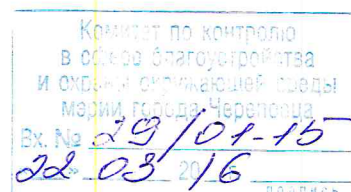 Комитет по контролю
в сфере благоустройства
и охраны окружающей среды
мэрии города Череповца
Вх. № 29/01-15
22 » 03 2016
подпись